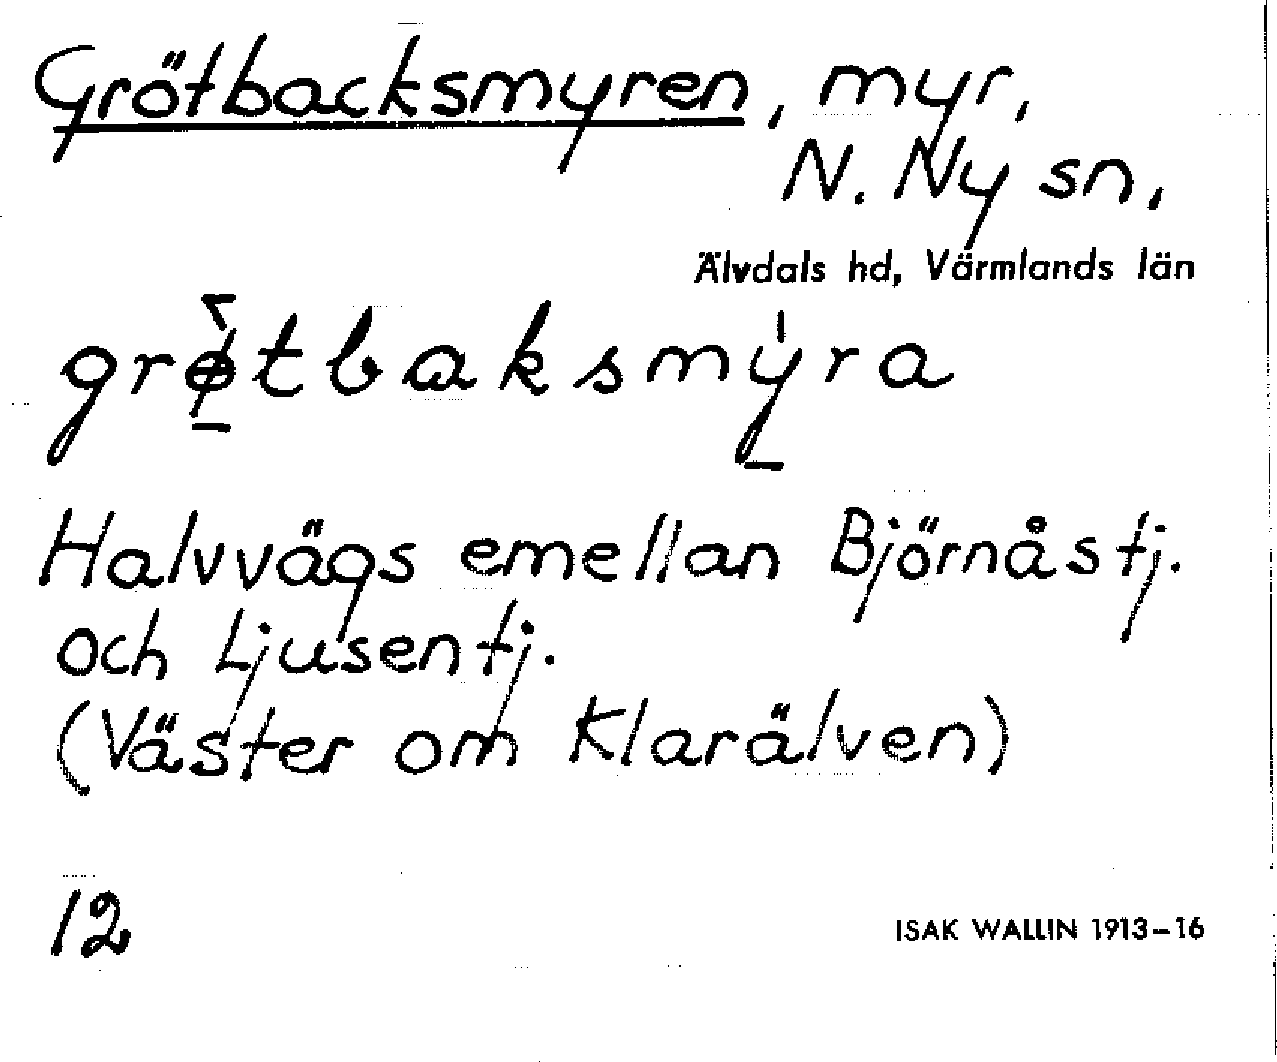 Grötbacksmyren, myr,
N. Ny sn,
Älvdals hd, Värmlands län
grø̀tbaksmy̍ra
Halvvägs emellan Björnåstj.
och Ljusentj.
(Väster om Klarälven)
12
ISAK WALLIN 1913–16